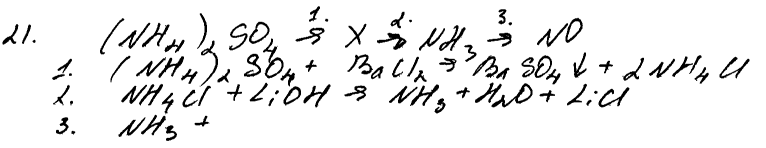 21. (NH4)2SO4 →1. X →2. NH3 →3. NO
1. (NH4)2SO4 + BaCl2 → BaSO4↓ + 2NH4Cl
2. NH4Cl + LiOH → NH3 + H2O + LiCl
3. NH3 +